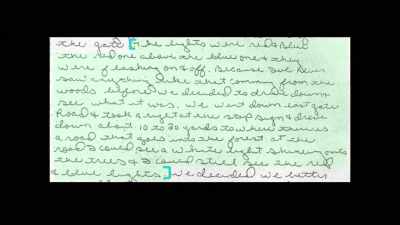 the gate [The lights were red & blue
the red one above the blue one & they
were flashing on & off. Because I've never
saw anything like that coming from the
woods before we decided to drive down &
see what it was. We went down east gate
Road & took a right at the stop sign & drove
down about 10 to 20 yards to where there is
a road that goes into the forest at the
road I could see a white light shining onto
the trees & I could still see the red
& blue lights] We decided we better